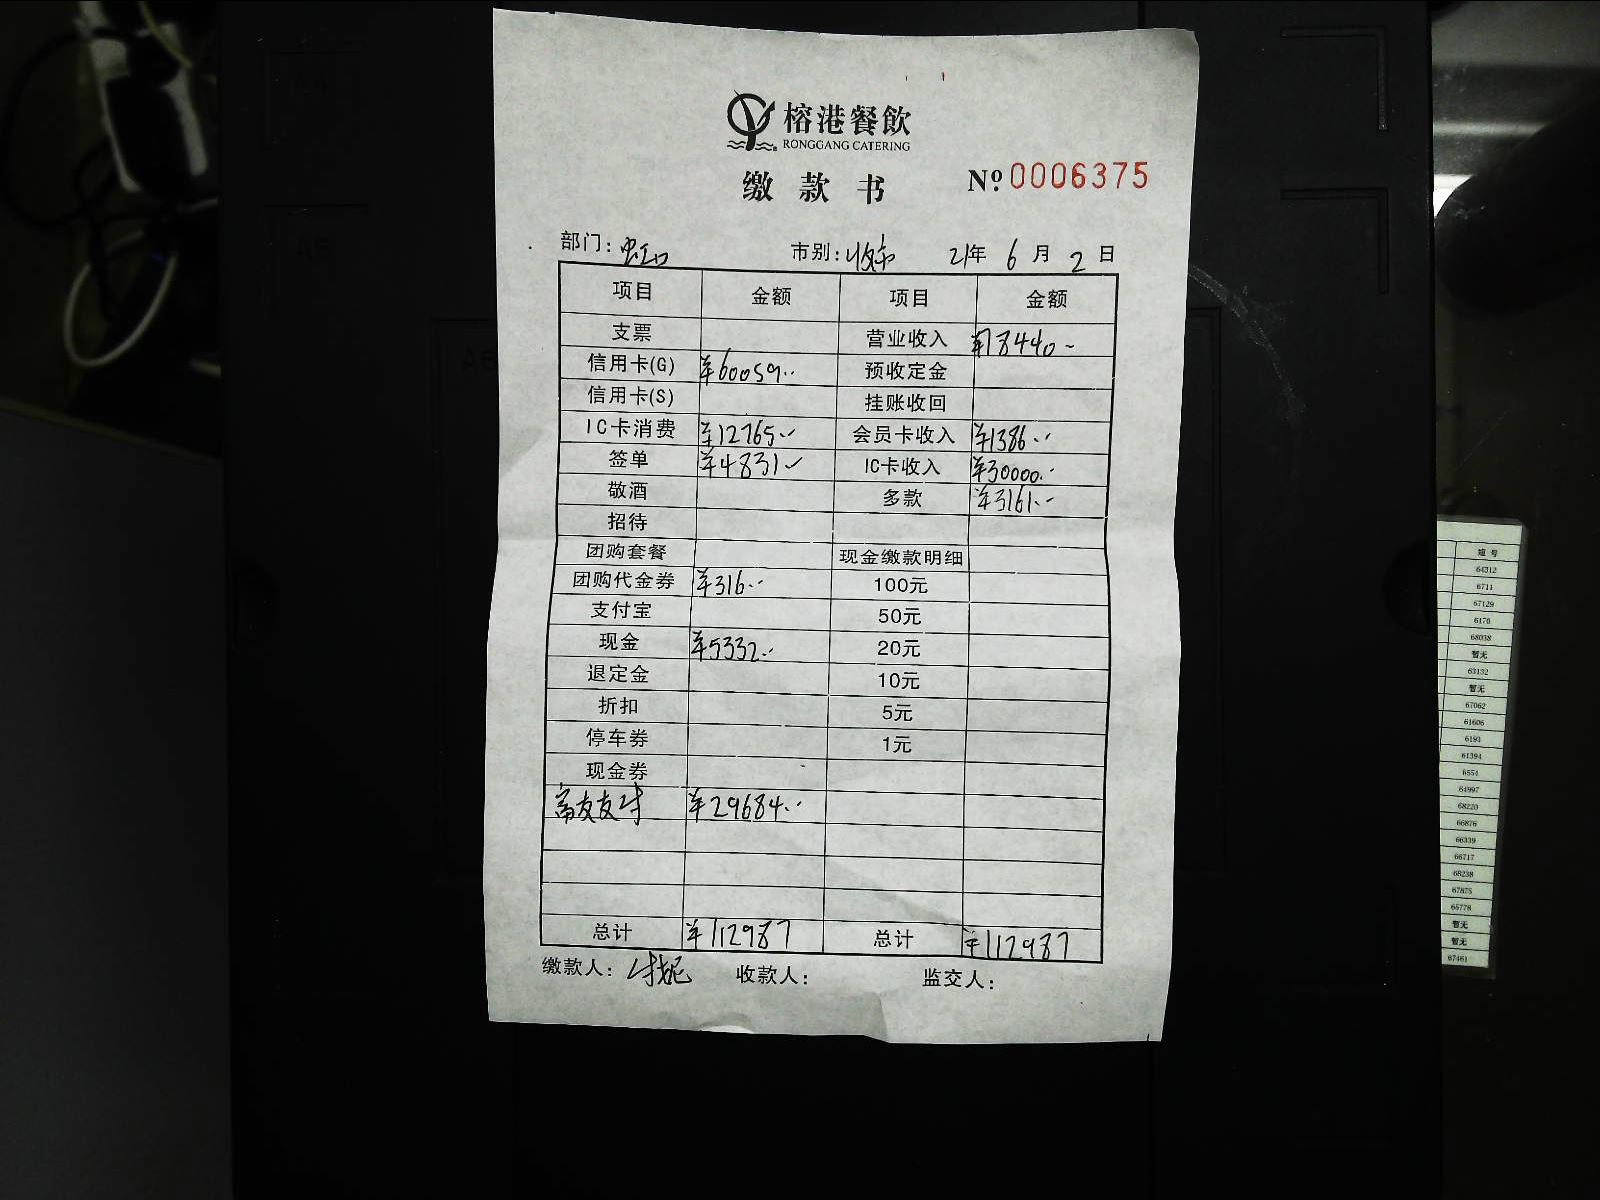 榕港餐飲
RONGGANG CATERING
缴款书 Nº 0006375
部门: 虹口 市别: 收市 21年 6月 2日
项目 金额 项目 金额
支票 营业收入 ¥78440-
信用卡(G) ¥60059.- 预收定金
信用卡(S) 挂账收回
IC卡消费 ¥12765.- 会员卡收入 ¥1386.-
签单 ¥4831.- IC卡收入 ¥30000.-
敬酒 多款 ¥3161.-
招待
团购套餐 现金缴款明细
团购代金券 ¥316.- 100元
支付宝 50元
现金 ¥5332.- 20元
退定金 10元
折扣 5元
停车券 1元
现金券
富友支付 ¥29684.-
总计 ¥112987 总计 ¥112987
缴款人: 收款人: 监交人:
短号
64312
6711
67129
6170
68038
暂无
63132
暂无
67062
61606
6193
61394
6554
64997
68220
66876
66339
66717
68238
67875
65778
暂无
暂无
67461